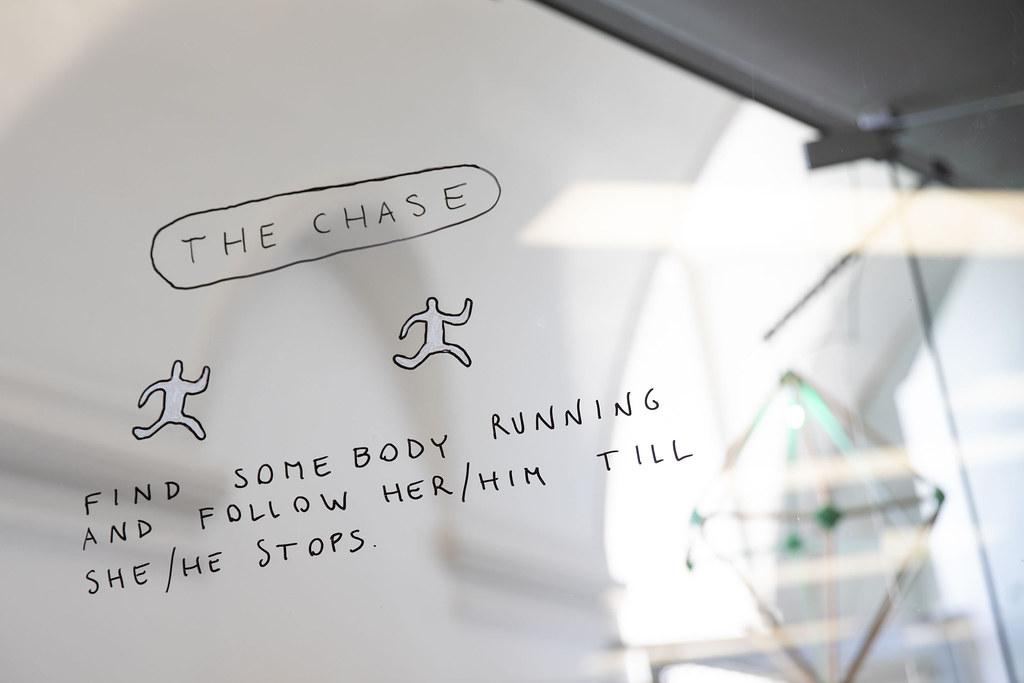 THE CHASE
FIND SOMEBODY RUNNING
AND FOLLOW HER/HIM TILL
SHE/HE STOPS.